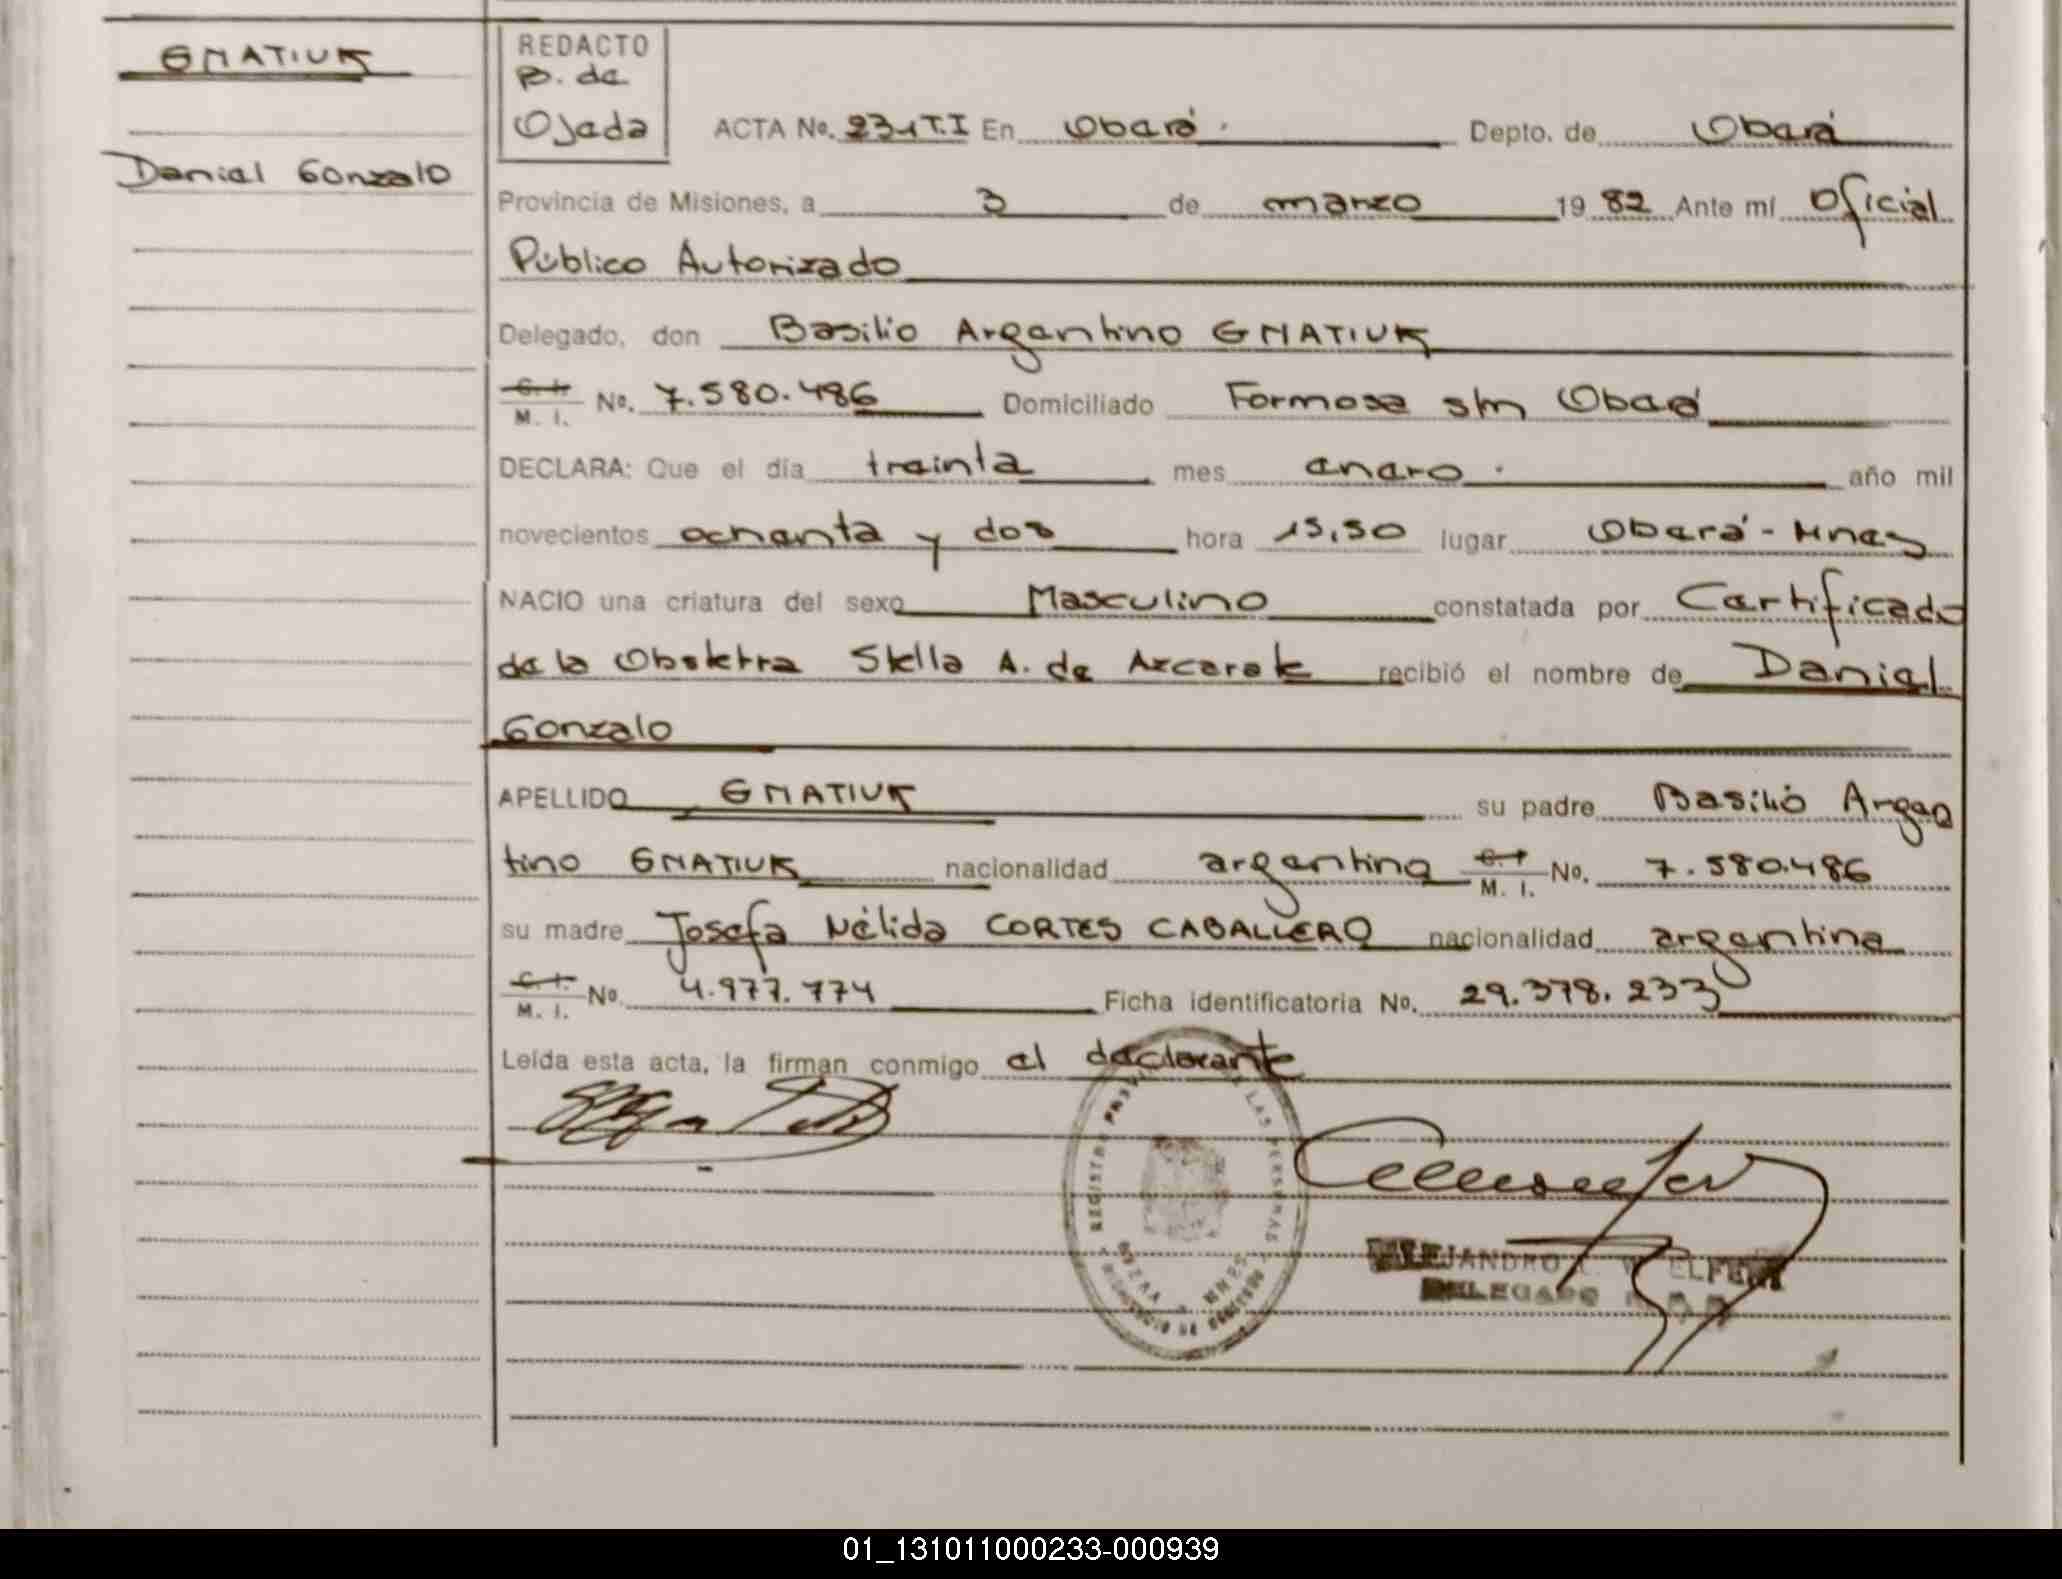 GNATIUK
Daniel Gonzalo
REDACTO
B. de
Ojeda
ACTA No. 231 T.I En Oberá Depto. de Oberá
Provincia de Misiones, a 3 de marzo 1982 Ante mí Oficial
Público Autorizado
Delegado, don Basilio Argentino GNATIUK
C. I. M. I. No. 7.580.486 Domiciliado Formosa s/n Oberá
DECLARA: Que el día treinta mes enero año mil
novecientos ochenta y dos hora 15,50 lugar Oberá - Mnes
NACIO una criatura del sexo Masculino constatada por Certificado
de la Obstetra Stella A. de Azcarate recibió el nombre de Daniel
Gonzalo
APELLIDO GNATIUK su padre Basilio Argen
tino GNATIUK nacionalidad argentina C. I. M. I. No. 7.580.486
su madre Josefa Nélida CORTES CABALLERO nacionalidad argentina
C. I. M. I. No. 4.977.774 Ficha identificatoria No. 29.378.233
Leída esta acta, la firman conmigo el declarante
REGISTRO LAS PERSONAS
ALEJANDRO
DELEGADO
01_131011000233-000939